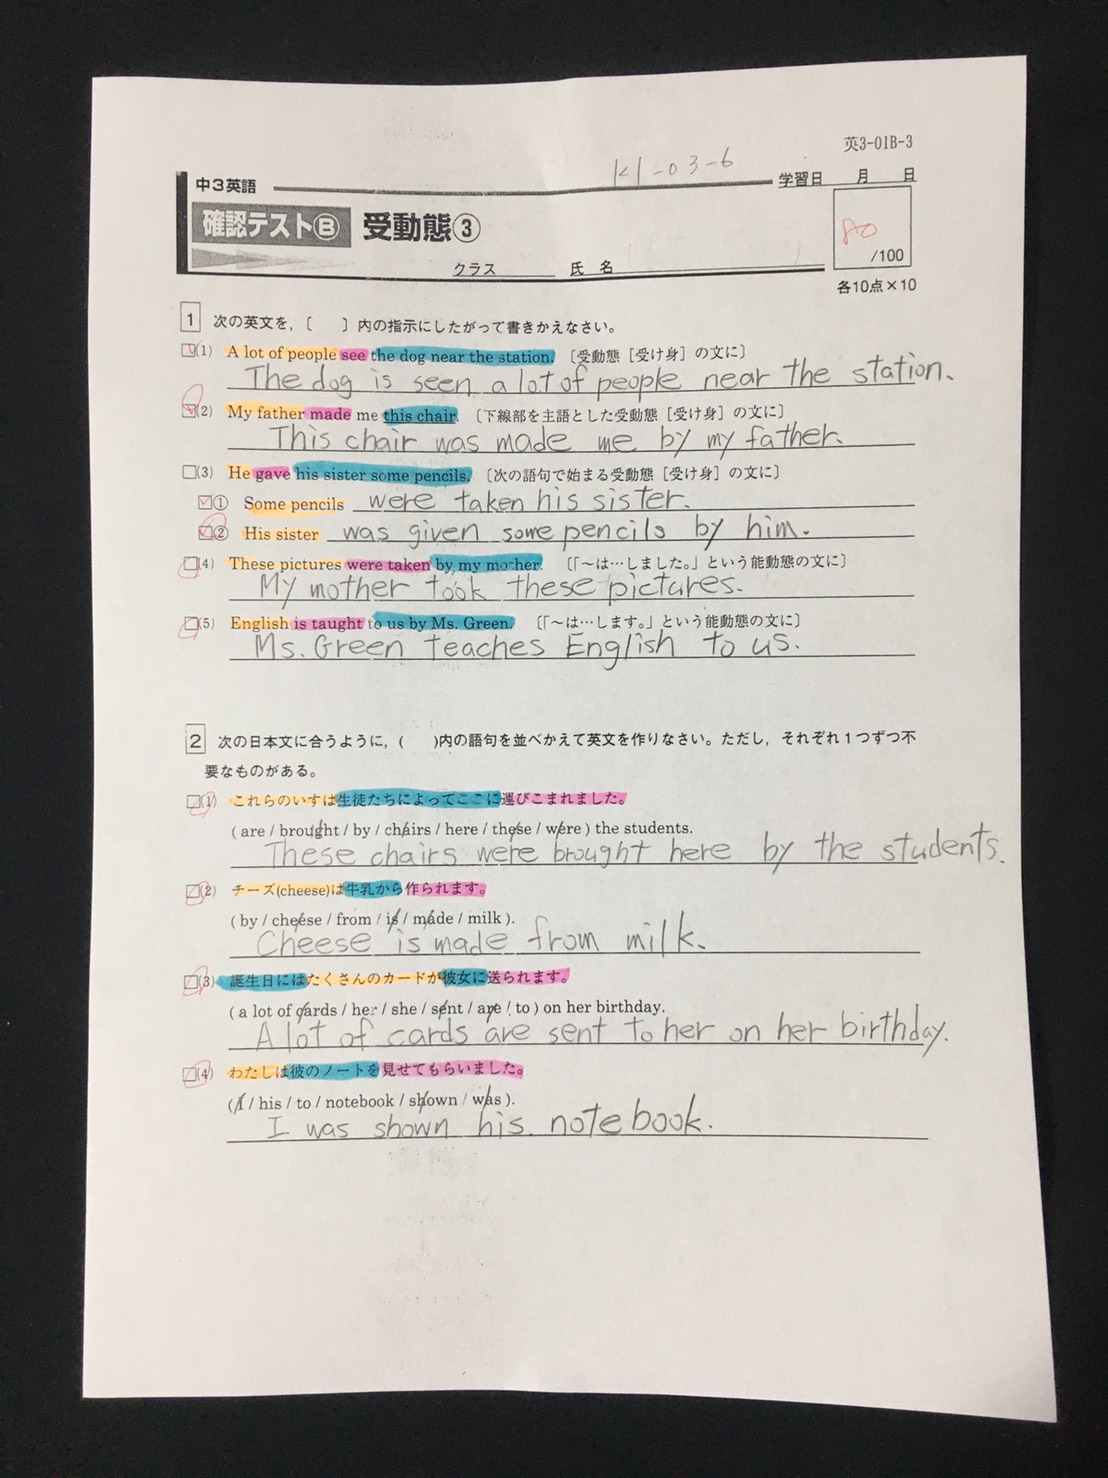 英3-01B-3
K1-03-6
中3英語
学習日 月 日
確認テストⒷ 受動態③
80
/100
クラス 氏名
各10点×10
1 次の英文を,〔 〕内の指示にしたがって書きかえなさい。
(1) A lot of people see the dog near the station. 〔受動態［受け身］の文に〕
The dog is seen a lot of people near the station.
(2) My father made me this chair. 〔下線部を主語とした受動態［受け身］の文に〕
This chair was made me by my father.
(3) He gave his sister some pencils. 〔次の語句で始まる受動態［受け身］の文に〕
① Some pencils were taken his sister.
② His sister was given some pencils by him.
(4) These pictures were taken by my mother. 〔「～は…しました。」という能動態の文に〕
My mother took these pictures.
(5) English is taught to us by Ms. Green. 〔「～は…します。」という能動態の文に〕
Ms. Green teaches English to us.
2 次の日本文に合うように,( )内の語句を並べかえて英文を作りなさい。ただし,それぞれ1つずつ不
要なものがある。
(1) これらのいすは生徒たちによってここに運びこまれました。
( are / brought / by / chairs / here / these / were ) the students.
These chairs were brought here by the students.
(2) チーズ(cheese)は牛乳から作られます。
( by / cheese / from / is / made / milk ).
Cheese is made from milk.
(3) 誕生日にはたくさんのカードが彼女に送られます。
( a lot of cards / her / she / sent / are / to ) on her birthday.
A lot of cards are sent to her on her birthday.
(4) わたしは彼のノートを見せてもらいました。
( I / his / to / notebook / shown / was ).
I was shown his notebook.